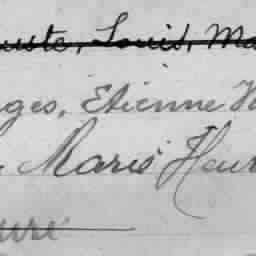 uste, Louis, Ma
ges, Etienne
Marie Heur
ure